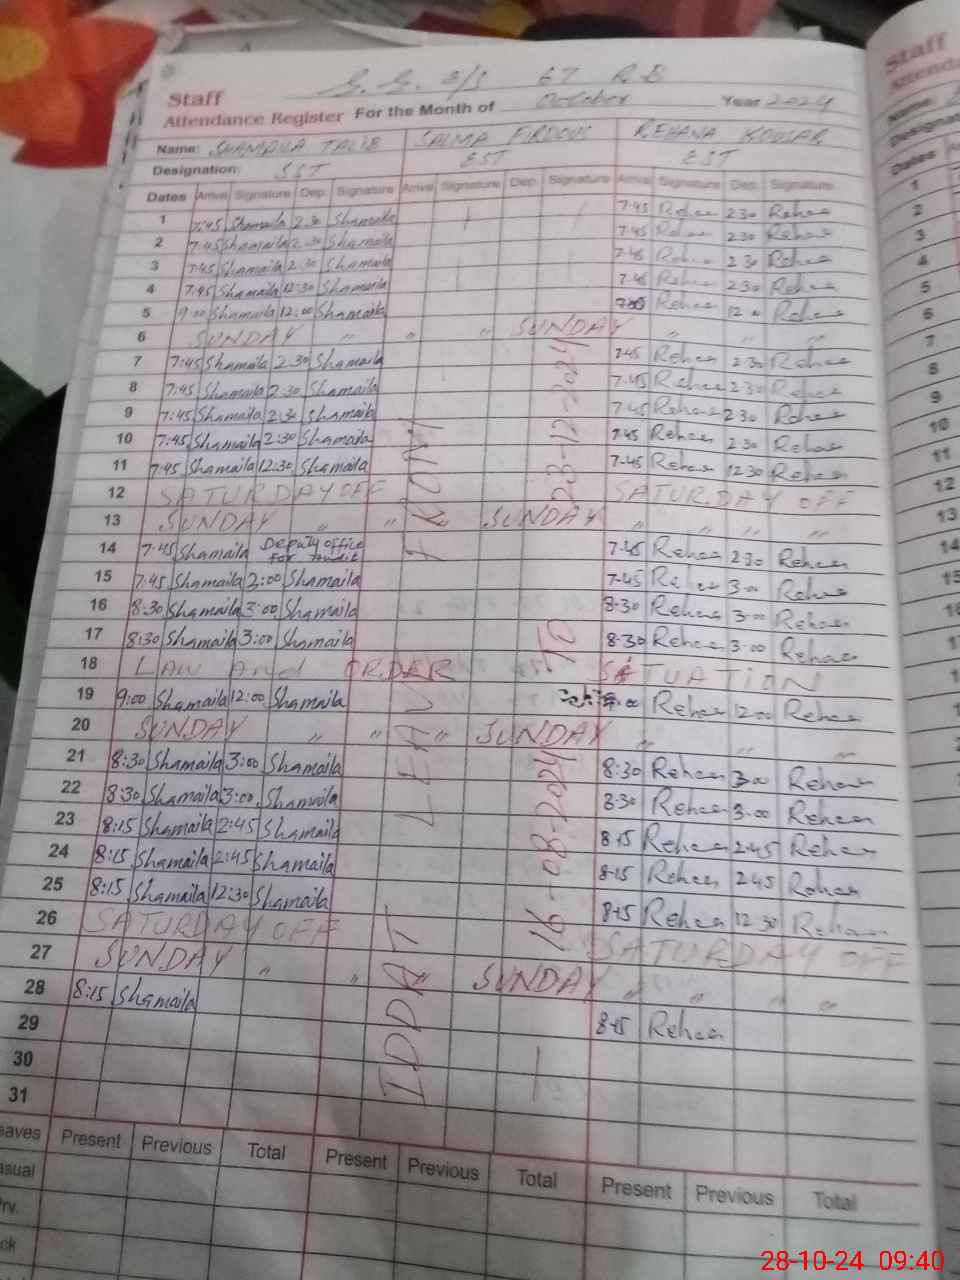 G. G. E/S 67 R.B
Staff
Attendance Register For the Month of October Year 2024
Name: SHAMAILA TALIB SALMA FIRDOUS REHANA KOUSAR
Designation: SST EST EST
Dates Arrival Signature Dep. Signature Arrival Signature Dep. Signature Arrival Signature Dep. Signature
1 7:45 Shamaila 2:30 Shamaila 7:45 Rehan 2:30 Rehan
2 7:45 Shamaila 2:30 Shamaila 7:45 Rehan 2:30 Rehan
3 7:45 Shamaila 2:30 Shamaila 7:45 Rehan 2:30 Rehan
4 7:45 Shamaila 12:30 Shamaila 7:45 Rehan 2:30 Rehan
5 9:00 Shamaila 12:00 Shamaila Rehan 12 Rehan
6 SUNDAY " " " SUNDAY " " "
7 7:45 Shamaila 2:30 Shamaila 7:45 Rehan 2:30 Rehan
8 7:45 Shamaila 2:30 Shamaila 7:45 Rehan 2:30 Rehan
9 7:45 Shamaila 2:30 Shamaila 7:45 Rehan 2:30 Rehan
10 7:45 Shamaila 2:30 Shamaila 7:45 Rehan 2:30 Rehan
11 7:45 Shamaila 12:30 Shamaila 7:45 Rehan 12:30 Rehan
12 SATURDAY OFF SATURDAY OFF
13 SUNDAY " " " SUNDAY " " " "
14 7:45 Shamaila Deputy office 7:45 Rehan 2:30 Rehan
For
15 7:45 Shamaila 3:00 Shamaila 7:45 Rehan 3:00 Rehan
16 8:30 Shamaila 3:00 Shamaila 8:30 Rehan 3:00 Rehan
17 8:30 Shamaila 3:00 Shamaila 8:30 Rehan 3:00 Rehan
18 LAW And ORDER SATUATION
19 9:00 Shamaila 12:00 Shamaila Rehan 12:00 Rehan
20 SUNDAY " " " SUNDAY " " "
21 8:30 Shamaila 3:00 Shamaila 8:30 Rehan 3:00 Rehan
22 8:30 Shamaila 3:00 Shamaila 8:30 Rehan 3:00 Rehan
23 8:15 Shamaila 2:45 Shamaila 8:15 Rehan 2:45 Rehan
24 8:15 Shamaila 2:45 Shamaila 8:15 Rehan 2:45 Rehan
25 8:15 Shamaila 12:30 Shamaila 8:15 Rehan 12:30 Rehan
26 SATURDAY OFF SATURDAY OFF
27 SUNDAY " " " SUNDAY " " " "
28 8:15 Shamaila 8:15 Rehan
29
30
31
IDDAT LEAVE FROM
16-08-2024 TO 23-12-2024
Present Previous Total Present Previous Total Present Previous Total
Staff
Dates
1
2
3
4
5
6
7
8
9
10
11
12
13
14
28-10-24 09:40